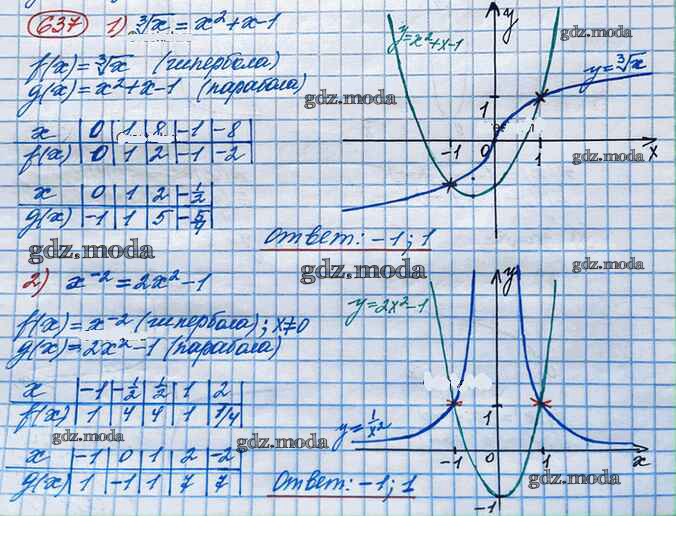 637 1) ∛x = x²+x-1
f(x) = ∛x (гипербола)
g(x) = x²+x-1 (парабола)
x | 0 | 1 | 8 | -1 | -8 |
f(x) | 0 | 1 | 2 | -1 | -2 |
x | 0 | 1 | 2 | -1/2
g(x) | -1 | 1 | 5 | -5/4
y=x²+x-1
y
y=∛x
1
-1 0 1 x
ответ: -1; 1
gdz.moda
gdz.moda
gdz.moda
gdz.moda
gdz.moda
gdz.moda
2) x⁻² = 2x² - 1
f(x) = x⁻² (гипербола); x≠0
g(x) = 2x² - 1 (парабола)
x | -1 | -1/2 | 1/2 | 1 | 2 |
f(x) | 1 | 4 | 4 | 1 | 1/4
x | -1 | 0 | 1 | 2 | -2 |
g(x) | 1 | -1 | 1 | 7 | 7 |
y=2x²-1
y
y=1/x²
1
-1 0 1 x
-1
Ответ: -1; 1
gdz.moda
gdz.moda
gdz.moda
gdz.moda
gdz.moda